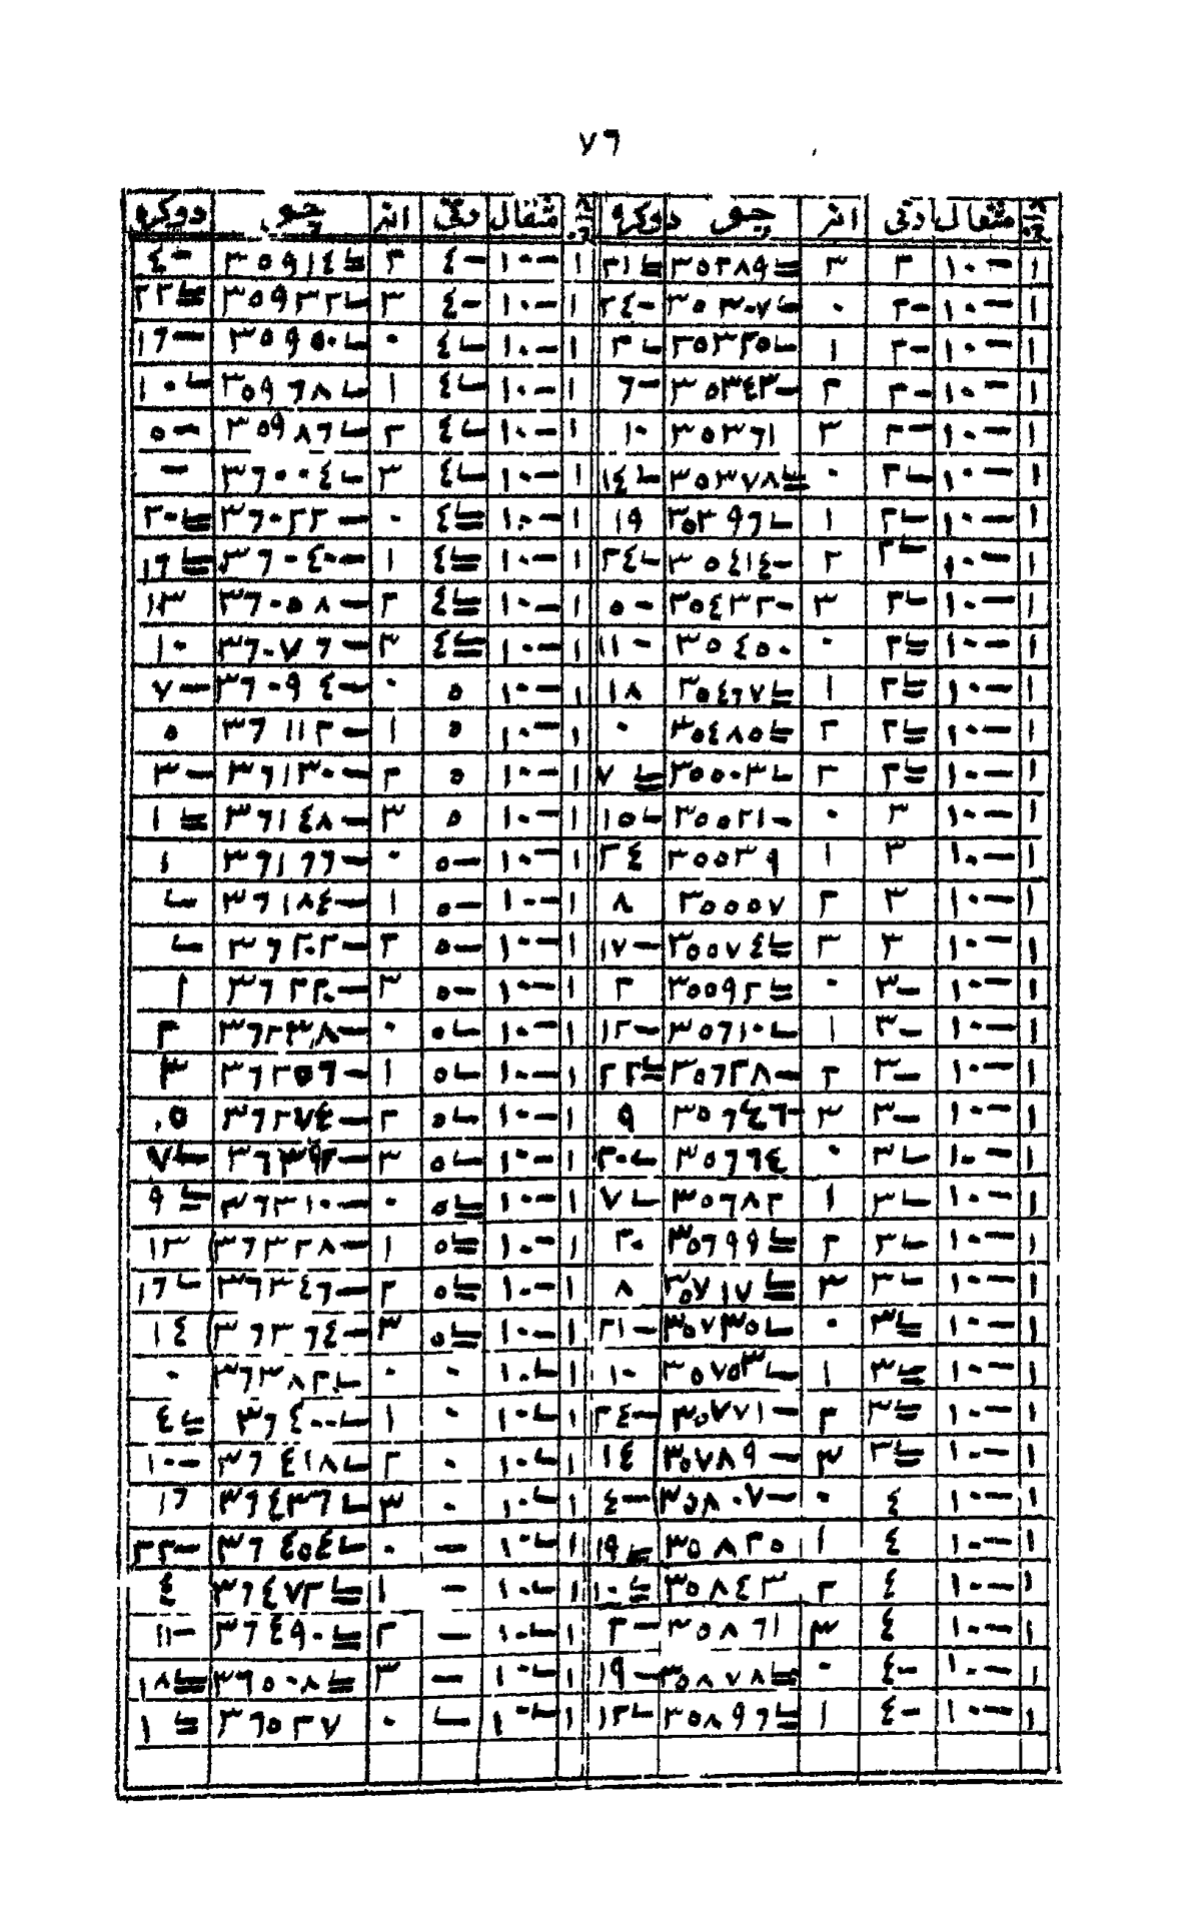 ٧٦
مثقال رتی انر چو دوکرہ مثقال رتی انر چو دوکرہ
١ ١٠— ٢ ٣ ٣٥٢٨٩ ٢١ ١ ١٠— ٤— ٢ ٣٥٩١٤ ٤—
١ ١٠— ٢— ٠ ٣٥٣٠٧ ٢٤— ١ ١٠— ٤— ٣ ٣٥٩٣٢ ٢٢
١ ١٠— ٢— ١ ٣٥٣٢٥ ٢ ١ ١٠— ٤ ٠ ٣٥٩٥٠ ١٦—
١ ١٠— ٢— ٢ ٣٥٣٤٣— ٦— ١ ١٠— ٤ ١ ٣٥٩٦٨ ١٠
١ ١٠— ٢— ٣ ٣٥٣٦١ ١٠ ١ ١٠— ٤ ٢ ٣٥٩٨٦ ٥—
١ ١٠— ٢ ٠ ٣٥٣٧٨ ١٤ ١ ١٠— ٤ ٣ ٣٦٠٠٤ —
١ ١٠— ٢ ١ ٣٥٣٩٦ ١٩ ١ ١٠— ٤ ٠ ٣٦٠٢٢— ٢٠
١ ١٠— ٢ ٢ ٣٥٤١٤— ٢٤ ١ ١٠— ٤ ١ ٣٦٠٤٠— ١٦
١ ١٠— ٢ ٣ ٣٥٤٣٢— ٥— ١ ١٠— ٤ ٢ ٣٦٠٥٨— ١٣
١ ١٠— ٢ ٠ ٣٥٤٥٠ ١١— ١ ١٠— ٤ ٣ ٣٦٠٧٦— ١٠
١ ١٠— ٢ ١ ٣٥٤٦٧ ١٨ ١ ١٠— ٥ ٠ ٣٦٠٩٤— ٧—
١ ١٠— ٢ ٢ ٣٥٤٨٥ ٠ ١ ١٠— ٥ ١ ٣٦١١٢— ٥
١ ١٠— ٢ ٣ ٣٥٥٠٣ ٧ ١ ١٠— ٥ ٢ ٣٦١٣٠— ٣—
١ ١٠— ٣ ٠ ٣٥٥٢١— ١٥ ١ ١٠— ٥ ٣ ٣٦١٤٨— ١
١ ١٠— ٣ ١ ٣٥٥٣٩ ٢٤ ١ ١٠— ٥— ٠ ٣٦١٦٦— ١
١ ١٠— ٣ ٢ ٣٥٥٥٧ ٨ ١ ١٠— ٥— ١ ٣٦١٨٤—
١ ١٠— ٣ ٣ ٣٥٥٧٤ ١٧— ١ ١٠— ٥— ٢ ٣٦٢٠٢—
١ ١٠— ٣— ٠ ٣٥٥٩٢ ٢ ١ ١٠— ٥— ٣ ٣٦٢٢٠— ١
١ ١٠— ٣— ١ ٣٥٦١٠ ١٢— ١ ١٠— ٥ ٠ ٣٦٢٣٨— ٢
١ ١٠— ٣— ٢ ٣٥٦٢٨— ٢٢ ١ ١٠— ٥ ١ ٣٦٢٥٦— ٣
١ ١٠— ٣— ٣ ٣٥٦٤٦— ٩ ١ ١٠— ٥ ٢ ٣٦٢٧٤— ٥
١ ١٠— ٣ ٠ ٣٥٦٦٤ ٢٠ ١ ١٠— ٥ ٣ ٣٦٢٩٢— ٧
١ ١٠— ٣ ١ ٣٥٦٨٢ ٧ ١ ١٠— ٥ ٠ ٣٦٣١٠— ٩
١ ١٠— ٣ ٢ ٣٥٦٩٩ ٢٠ ١ ١٠— ٥ ١ ٣٦٣٢٨— ١٣
١ ١٠— ٣ ٣ ٣٥٧١٧ ٨ ١ ١٠— ٥ ٢ ٣٦٣٤٦— ١٦
١ ١٠— ٣ ٠ ٣٥٧٣٥ ٢١— ١ ١٠— ٥ ٣ ٣٦٣٦٤— ١٤
١ ١٠— ٣ ١ ٣٥٧٥٣ ١٠ ١ ١٠ ٠ ٠ ٣٦٣٨٢ ٠
١ ١٠— ٣ ٢ ٣٥٧٧١— ٢٤— ١ ١٠ ٠ ١ ٣٦٤٠٠ ٤
١ ١٠— ٣ ٣ ٣٥٧٨٩— ١٤ ١ ١٠ ٠ ٢ ٣٦٤١٨ ١٠—
١ ١٠— ٤ ٠ ٣٥٨٠٧— ٤— ١ ١٠ ٠ ٣ ٣٦٤٣٦ ١٦
١ ١٠— ٤ ١ ٣٥٨٢٥ ١٩ ١ ١٠ — ٠ ٣٦٤٥٤ ٢٢—
١ ١٠— ٤ ٢ ٣٥٨٤٣ ١٠ ١ ١٠ — ١ ٣٦٤٧٢ ٤
١ ١٠— ٤ ٣ ٣٥٨٦١ ٢— ١ ١٠ — ٢ ٣٦٤٩٠ ١١—
١ ١٠— ٤— ٠ ٣٥٨٧٨ ١٩— ١ ١٠ — ٣ ٣٦٥٠٨ ١٨
١ ١٠— ٤— ١ ٣٥٨٩٦ ١٢ ١ ١٠ ٠ ٣٦٥٢٧ ١